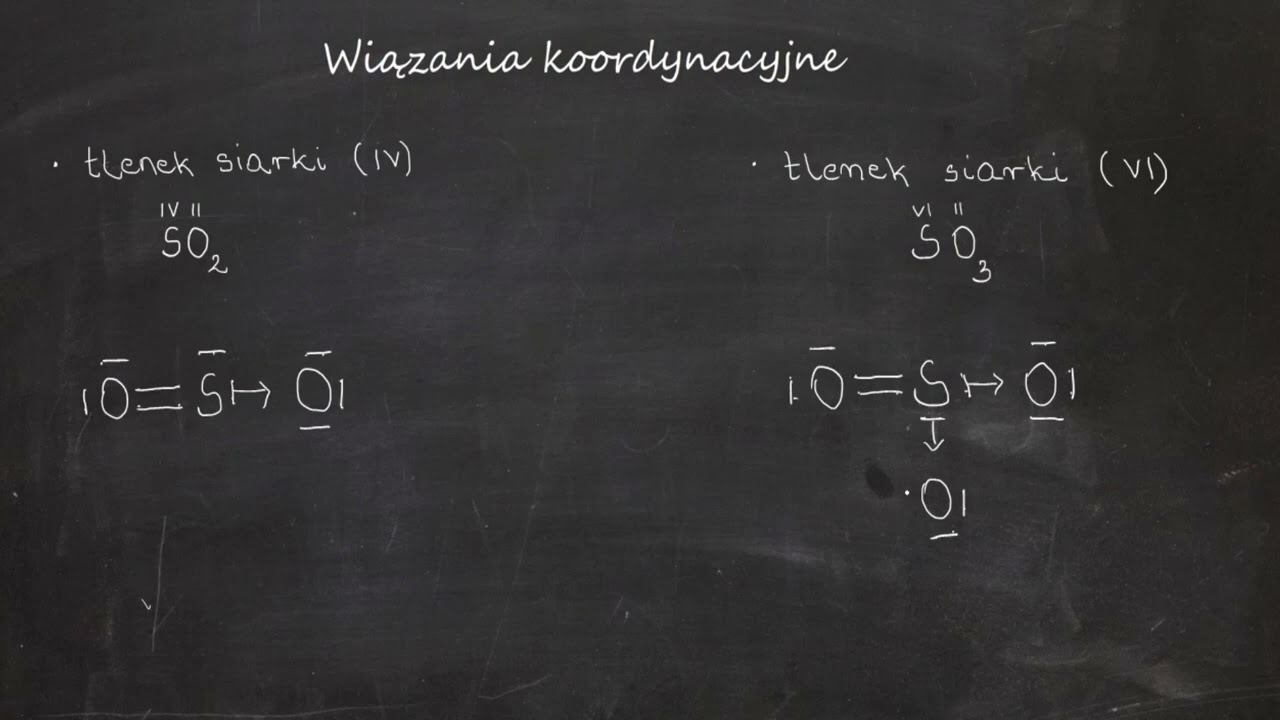 Wiązania koordynacyjne
· tlenek siarki (IV)
IV II
SO2
|O=S↦O|
· tlenek siarki (VI)
VI II
SO3
|O=S↦O|
↧
·O|